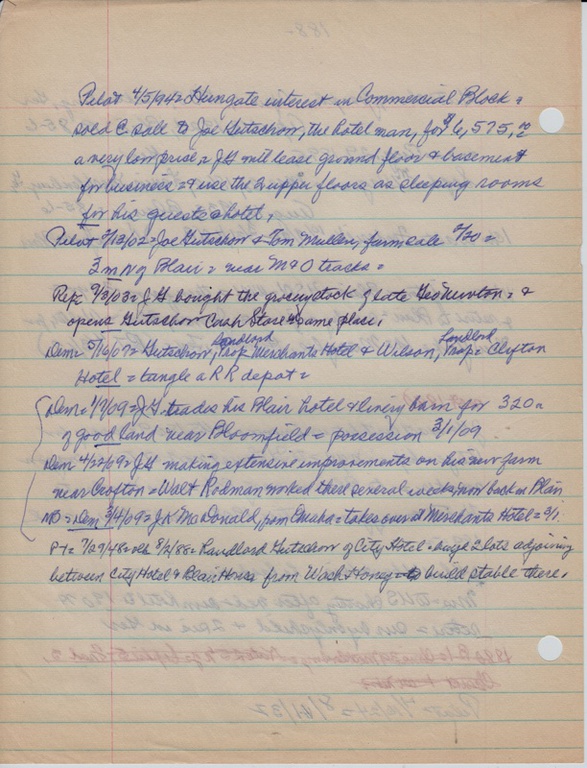 Pilot 4/5/94 = Hungate interest in Commercial Block =
sold @ sale to Joe Gutschow, the hotel man, for $6,575,00
a very low price = JG will lease ground floor & basement
for business = & use the 2 upper floors as sleeping rooms
for his guests @ hotel.
Pilot 2/12/02 = Joe Gutschow & Tom Mullen, farm sale 2/20 =
3 m N of Blair = near M&O tracks =
Rep. 9/2/03 = JG bought the grocery stock of late Geo Newton = &
opens Gutschow Cash Store @ same place.
Landlord Landlord
Dem = 5/16/07 = Gutschow, Prop. Merchants Hotel & Wilson, Prop = Clifton
Hotel = tangle @ RR depot =
Dem = 1/7/09 = JG trades his Blair hotel & livery barn for 320 a
of good land near Bloomfield = possession 3/1/09
Dem 4/22/09 = JG making extensive improvements on his new farm
near Crofton = Walt Rodman worked there several weeks, now back in Blair
Dem 3/4/09 = McDonald, from Omaha = takes over @ Merchants Hotel = 3/1.
PT = 7/29/48 = 8/2/88 = Landlord Gutschow of City Hotel = buys 2 lots adjoining
between City Hotel & Blair House from Wash Honey to build stable there.
188-